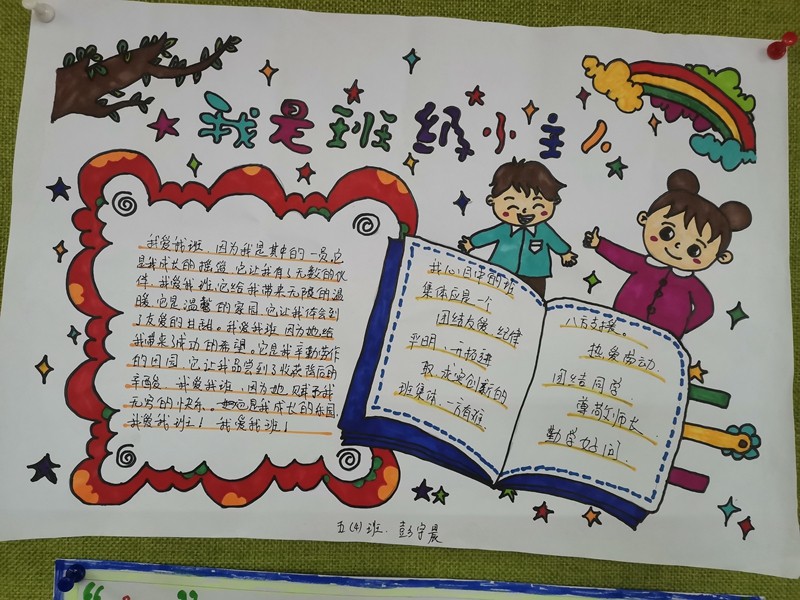 我是班级小主人
我爱我班,因为我是其中的一员,它
是我成长的摇篮,它让我有了无数的伙
伴。我爱我班,它给我带来无限的温
暖,它是温馨的家园,它让我体会到
了友爱的甘甜。我爱我班,因为她给
我带来了成功的希望。它是我辛勤劳作
的田园,它让我品尝到了收获背后的
辛酸。我爱我班,因为她赋予我
无穷的快乐。它是我成长的乐园。
我爱我班!我爱我班!
我心目中的班
集体应是一个
团结友爱 纪律
严明、开拓进
取、求实创新的
班集体。一方有难
八方支援。
热爱劳动.
团结同学.
尊敬师长.
勤学好问.
五(4)班. 彭宇晨